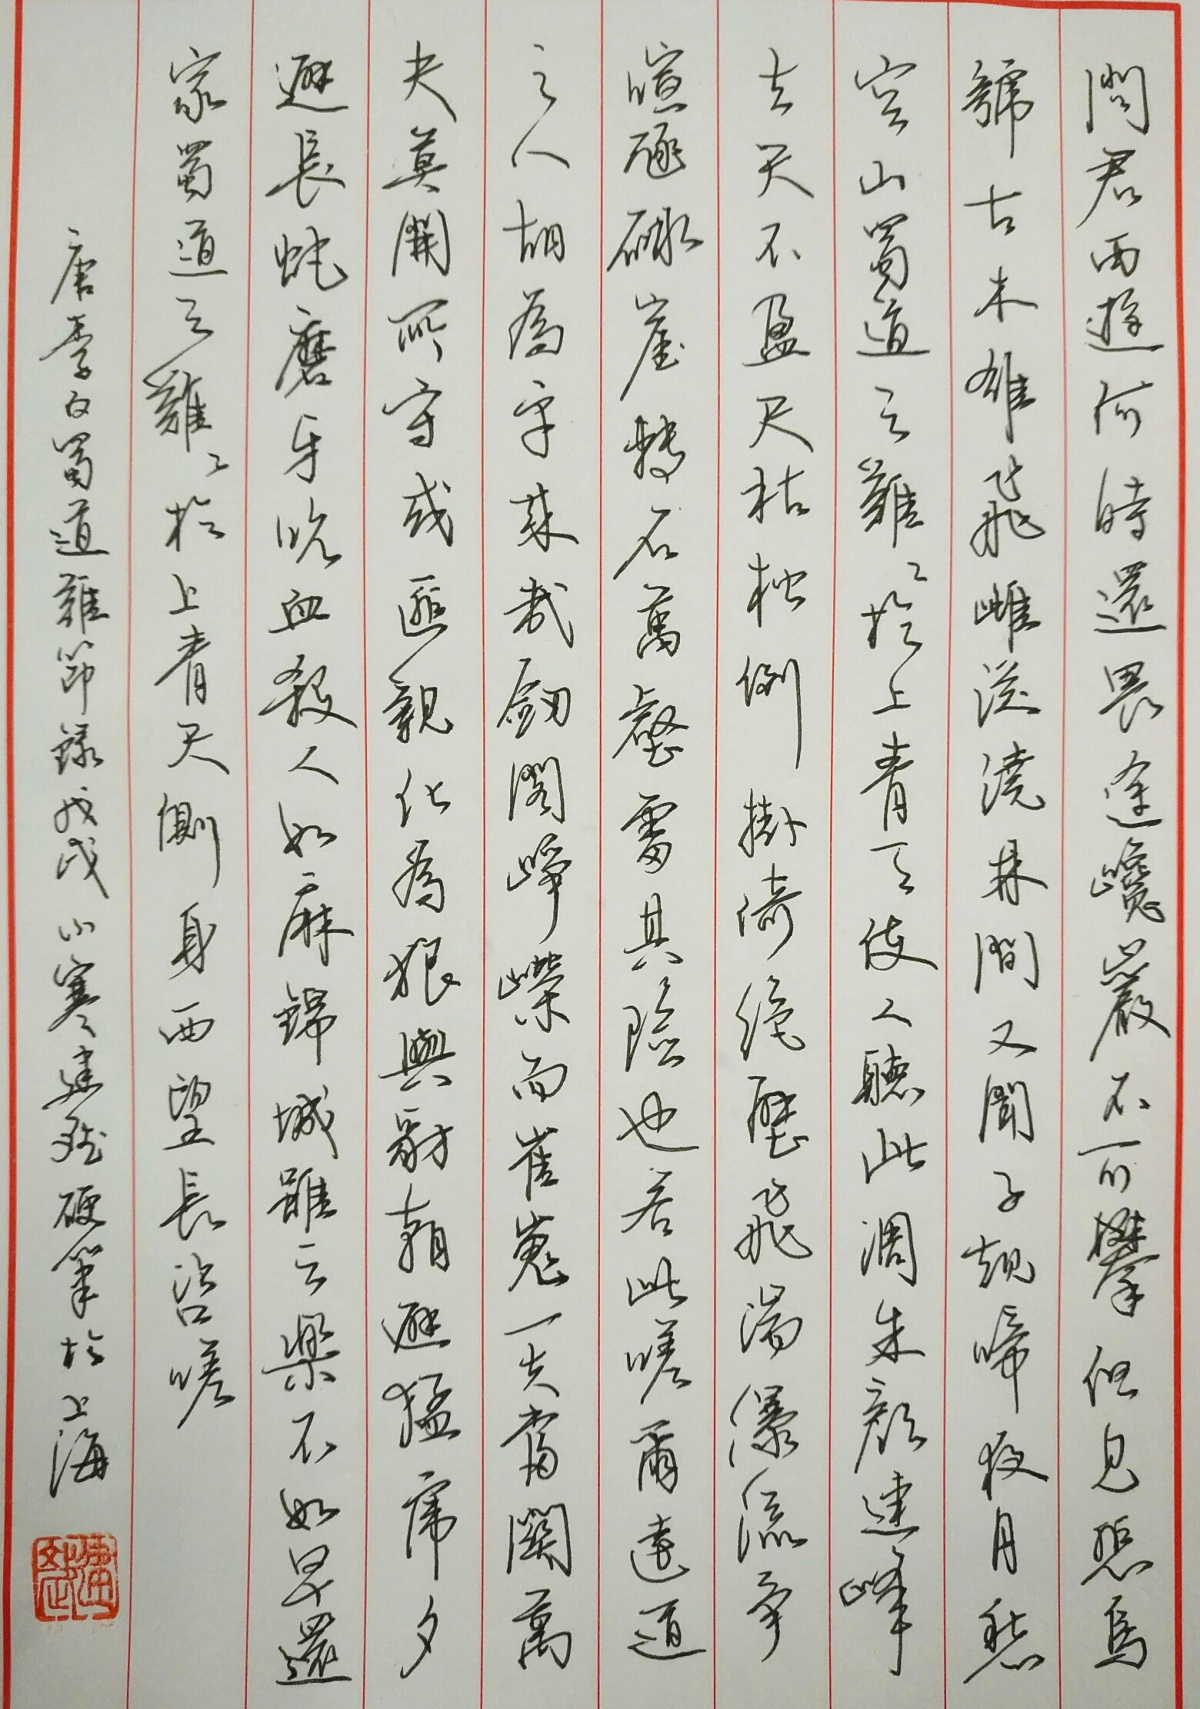 問君西遊何時還畏途巉巖不可攀但見悲鳥
號古木雄飛雌從遶林間又聞子規啼夜月愁
空山蜀道之難〻於上青天使人聽此凋朱顏連峰
去天不盈尺枯松倒掛倚絕壁飛湍瀑流爭
喧豗砯崖轉石萬壑雷其險也若此嗟爾遠道
之人胡為乎來哉劍閣崢嶸而崔嵬一夫當關萬
夫莫開所守或匪親化為狼與豺朝避猛虎夕
避長蛇磨牙吮血殺人如麻錦城雖云樂不如早還
家蜀道之難〻於上青天側身西望長咨嗟
唐李白蜀道難節錄戊戌小寒建硬筆於上海